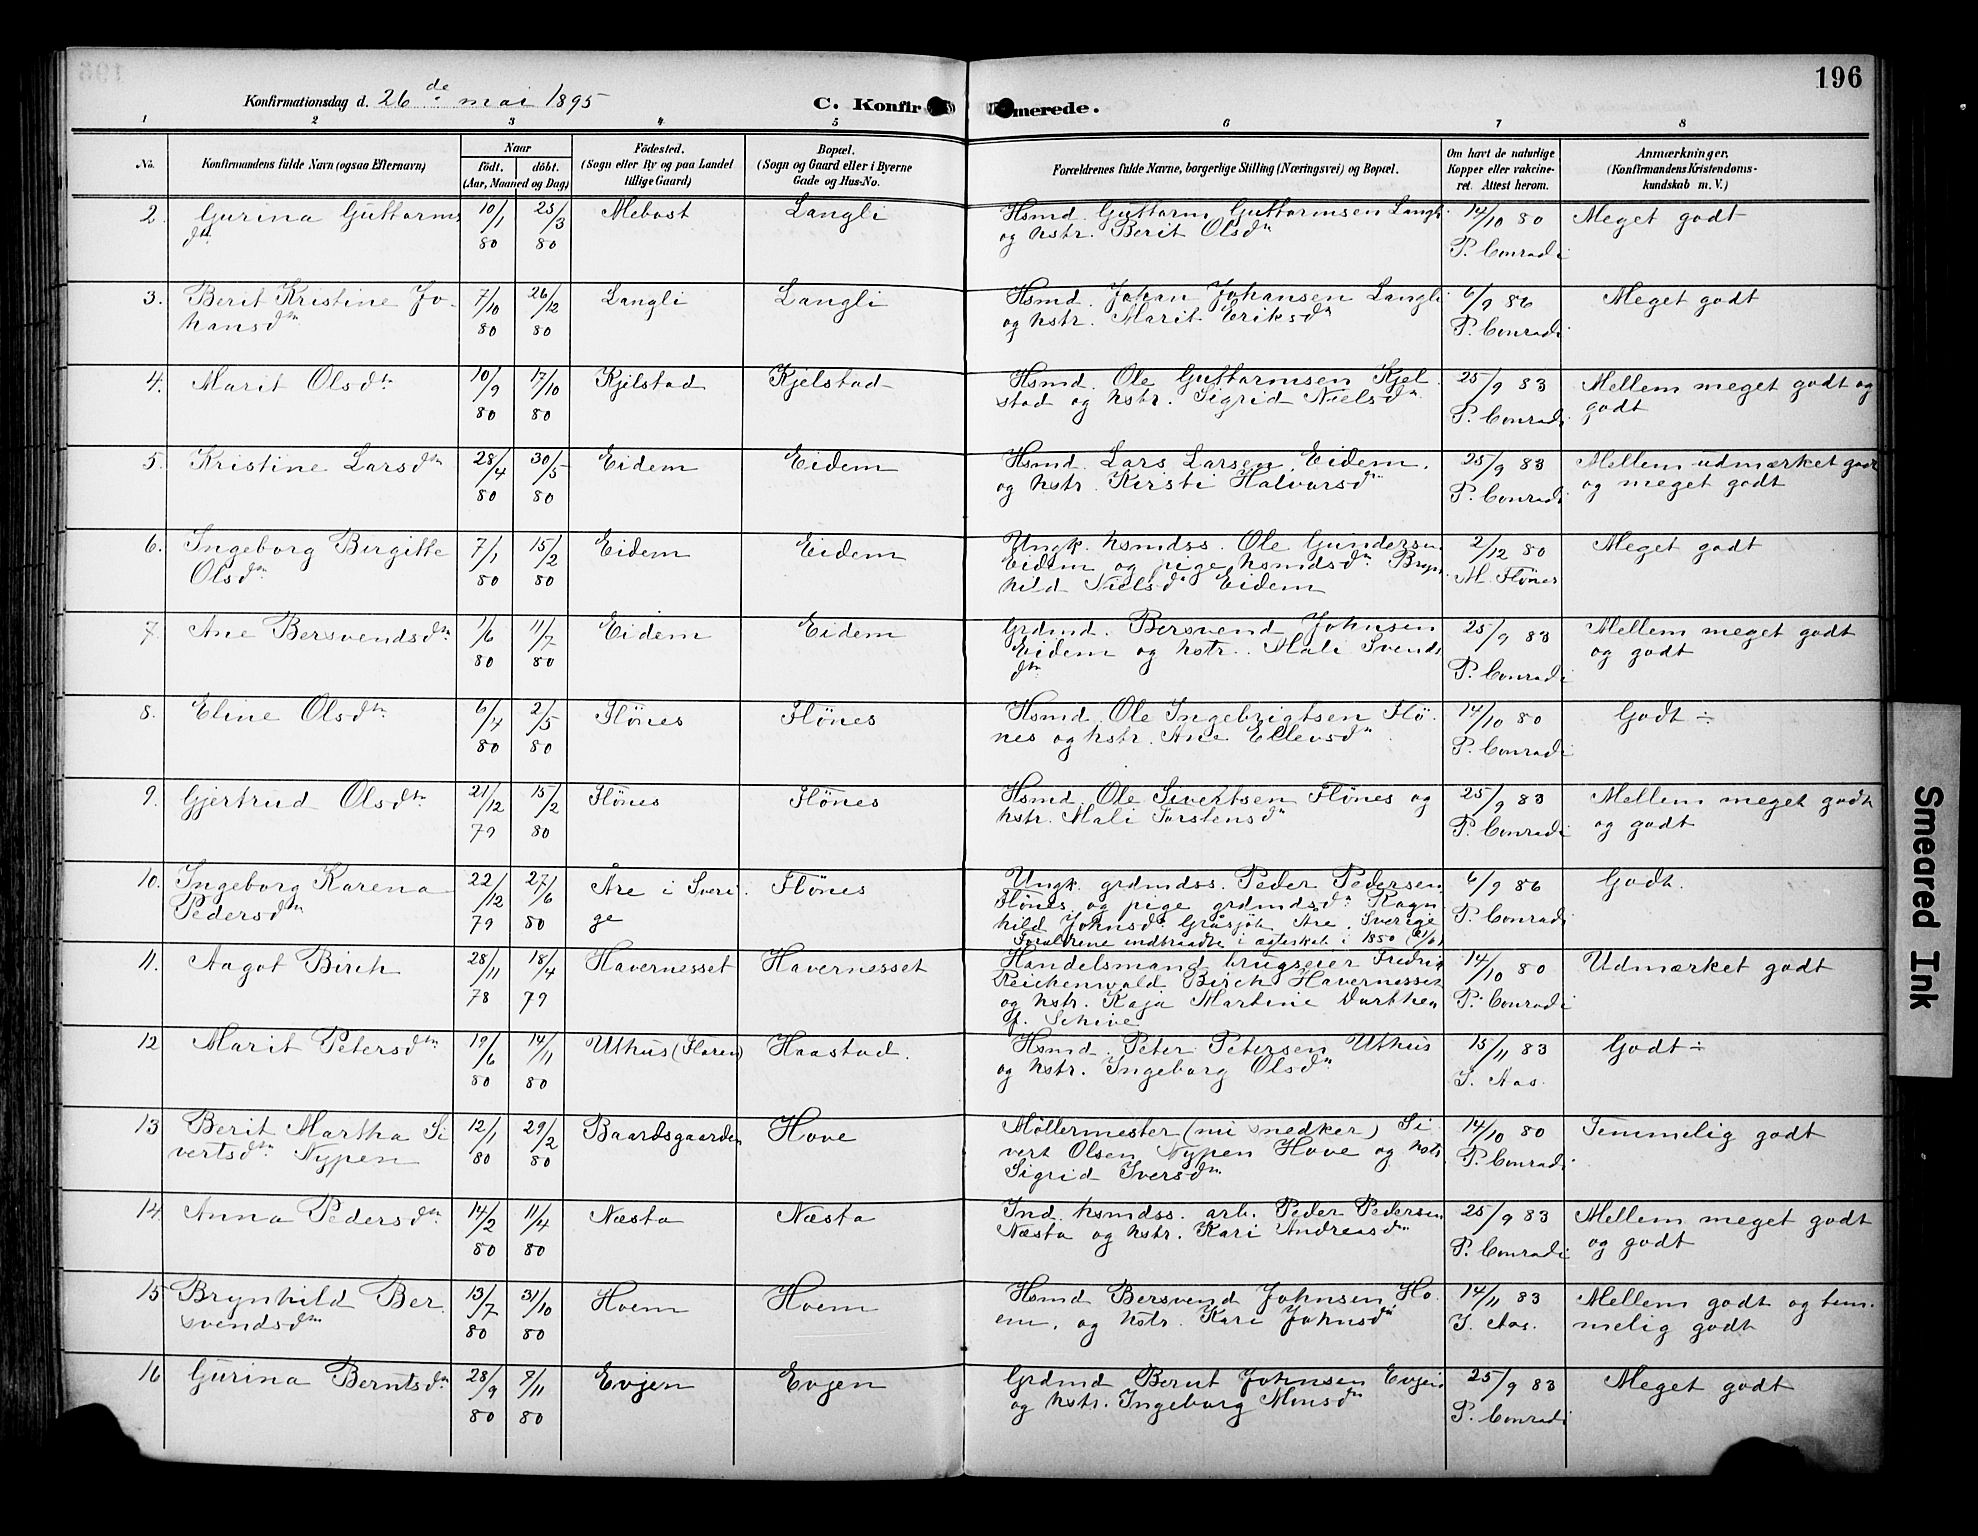 196
Konfirmationsdag d. 26de mai 1895
C. Konfirmerede.
1 2 3 4 5 6 7 8
No. Konfirmandens fulde Navn (ogsaa Efternavn) Naar födt. döbt. (Aar, Maaned og Dag) Födested. (Sogn eller By og paa Landet tillige Gaard) Bopæl. (Sogn og Gaard eller i Byerne Gade og Hus-No. Forældrenes fulde Navne, borgerlige Stilling (Næringsvei) og Bopæl. Om havt de naturlige Kopper eller vakcineret. Attest herom. Anmærkninger. (Konfirmandens Kristendomskundskab m. V.)
2. Gurina Guttormsdtr 10/1 80 25/3 80 Mebost Langli
Hsmd. Guttorm Guttormsen Langli
og hstr. Berit Olsdtr
14/10 80 P. Conradi Meget godt
3. Berit Kristine Johansdtr 7/10 80 26/12 80 Langli Langli
Hsmd. Johan Johansen Langli
og hstr. Marit Eriksdtr
6/9 86 P. Conradi Meget godt
4. Marit Olsdtr 10/9 80 17/10 80 Kjelstad Kjelstad
Hsmd. Ole Guttormsen Kjel
stad og hstr. Sigrid Nielsdtr
25/9 83 P. Conradi Mellem meget godt og
godt
5. Kristine Larsdtr 28/4 80 30/5 80 Eidem Eidem
Hsmd. Lars Larsen Eidem.
og hstr. Kirsti Halvorsdtr
25/9 83 P. Conradi Mellem udmærket godt
og meget godt
6. Ingeborg Birgitte
Olsdtr 7/1 80 15/2 80 Eidem Eidem
Ungk. hsmdss. Ole Gundersen
Eidem og pige hsmdsdtr Bryn
hild Nielsdtr Eidem
2/12 80 M. Flönes Meget godt
7. Ane Bersvendsdtr 1/6 80 11/7 80 Eidem Eidem
Grdmd. Bersvend Johnsen
Eidem og hstr. Mali Svends
dtr
25/9 83 P. Conradi Mellem meget godt
og godt
8. Eline Olsdtr 6/4 80 2/5 80 Flönes Flönes
Hsmd. Ole Ingebrigtsen Flö
nes og hstr. Ane Ellevsdtr
14/10 80 P. Conradi Godt ÷
9. Gjertrud Olsdtr 21/12 79 15/2 80 Flönes Flönes
Hsmd. Ole Sivertsen Flönes og
hstr. Mali Torstensdtr
25/9 83 P. Conradi Mellem meget godt
og godt
10. Ingeborg Karena
Pedersdtr 22/12 79 27/6 80 Åre i Sveri
ge Flönes
Ungk. grdmdss. Peder Pedersen
Flönes og pige grdmdsdtr Ragn
hild Johnsdtr Gråsjöli Åre. Sverige
Forældrene indtraadte i ægteskab i 1880
6/9 86 P. Conradi Godt.
11. Aagot Birch 28/11 78 18/4 79 Havernesset Havernesset
Handelsmand, brugseier Fredrik
Reichenwald Birch Havernesset
og hstr. Kaja Martine Dorthea
f. Schive
14/10 80 P. Conradi Udmærket godt
12 Marit Petersdtr 19/6 80 14/11 80 Uthus (Floren) Haastad.
Hsmd. Peter Petersen Uthus
og hstr. Ingeborg Olsdtr
15/11 83 J. Aas. Godt ÷
13 Berit Martha Si
vertsdtr Nypen 12/1 80 29/2 80 Baardsgaarden Hove
Møllermester (nu snedker) Si
vert Olsen Nypen Hove og hstr
Sigrid Iversdtr
14/10 80 P. Conradi Temmelig godt
14 Anna Pedersdtr 14/2 80 11/4 80 Næsta Næsta
Ind. hsmdss. arb. Peder Pedersen
Næsta og hstr. Kari Andreasdtr
25/9 83 P. Conradi Mellem meget godt
og godt
15 Brynhild Ber
svendsdtr 13/7 80 31/10 80 Hoem Hoem
Hsmd Bersvend Johnsen Ho
em, og hstr. Kari Johnsdtr
14/11 83 J. Aas. Mellem godt og tem
melig godt
16 Gurina Berntsdtr 28/9 80 9/11 80 Evjen Evjen
Grdmd Bernt Johnsen Evjen
og hstr. Ingeborg Monsdtr
25/9 83 P. Conradi Meget godt
Smeared Ink